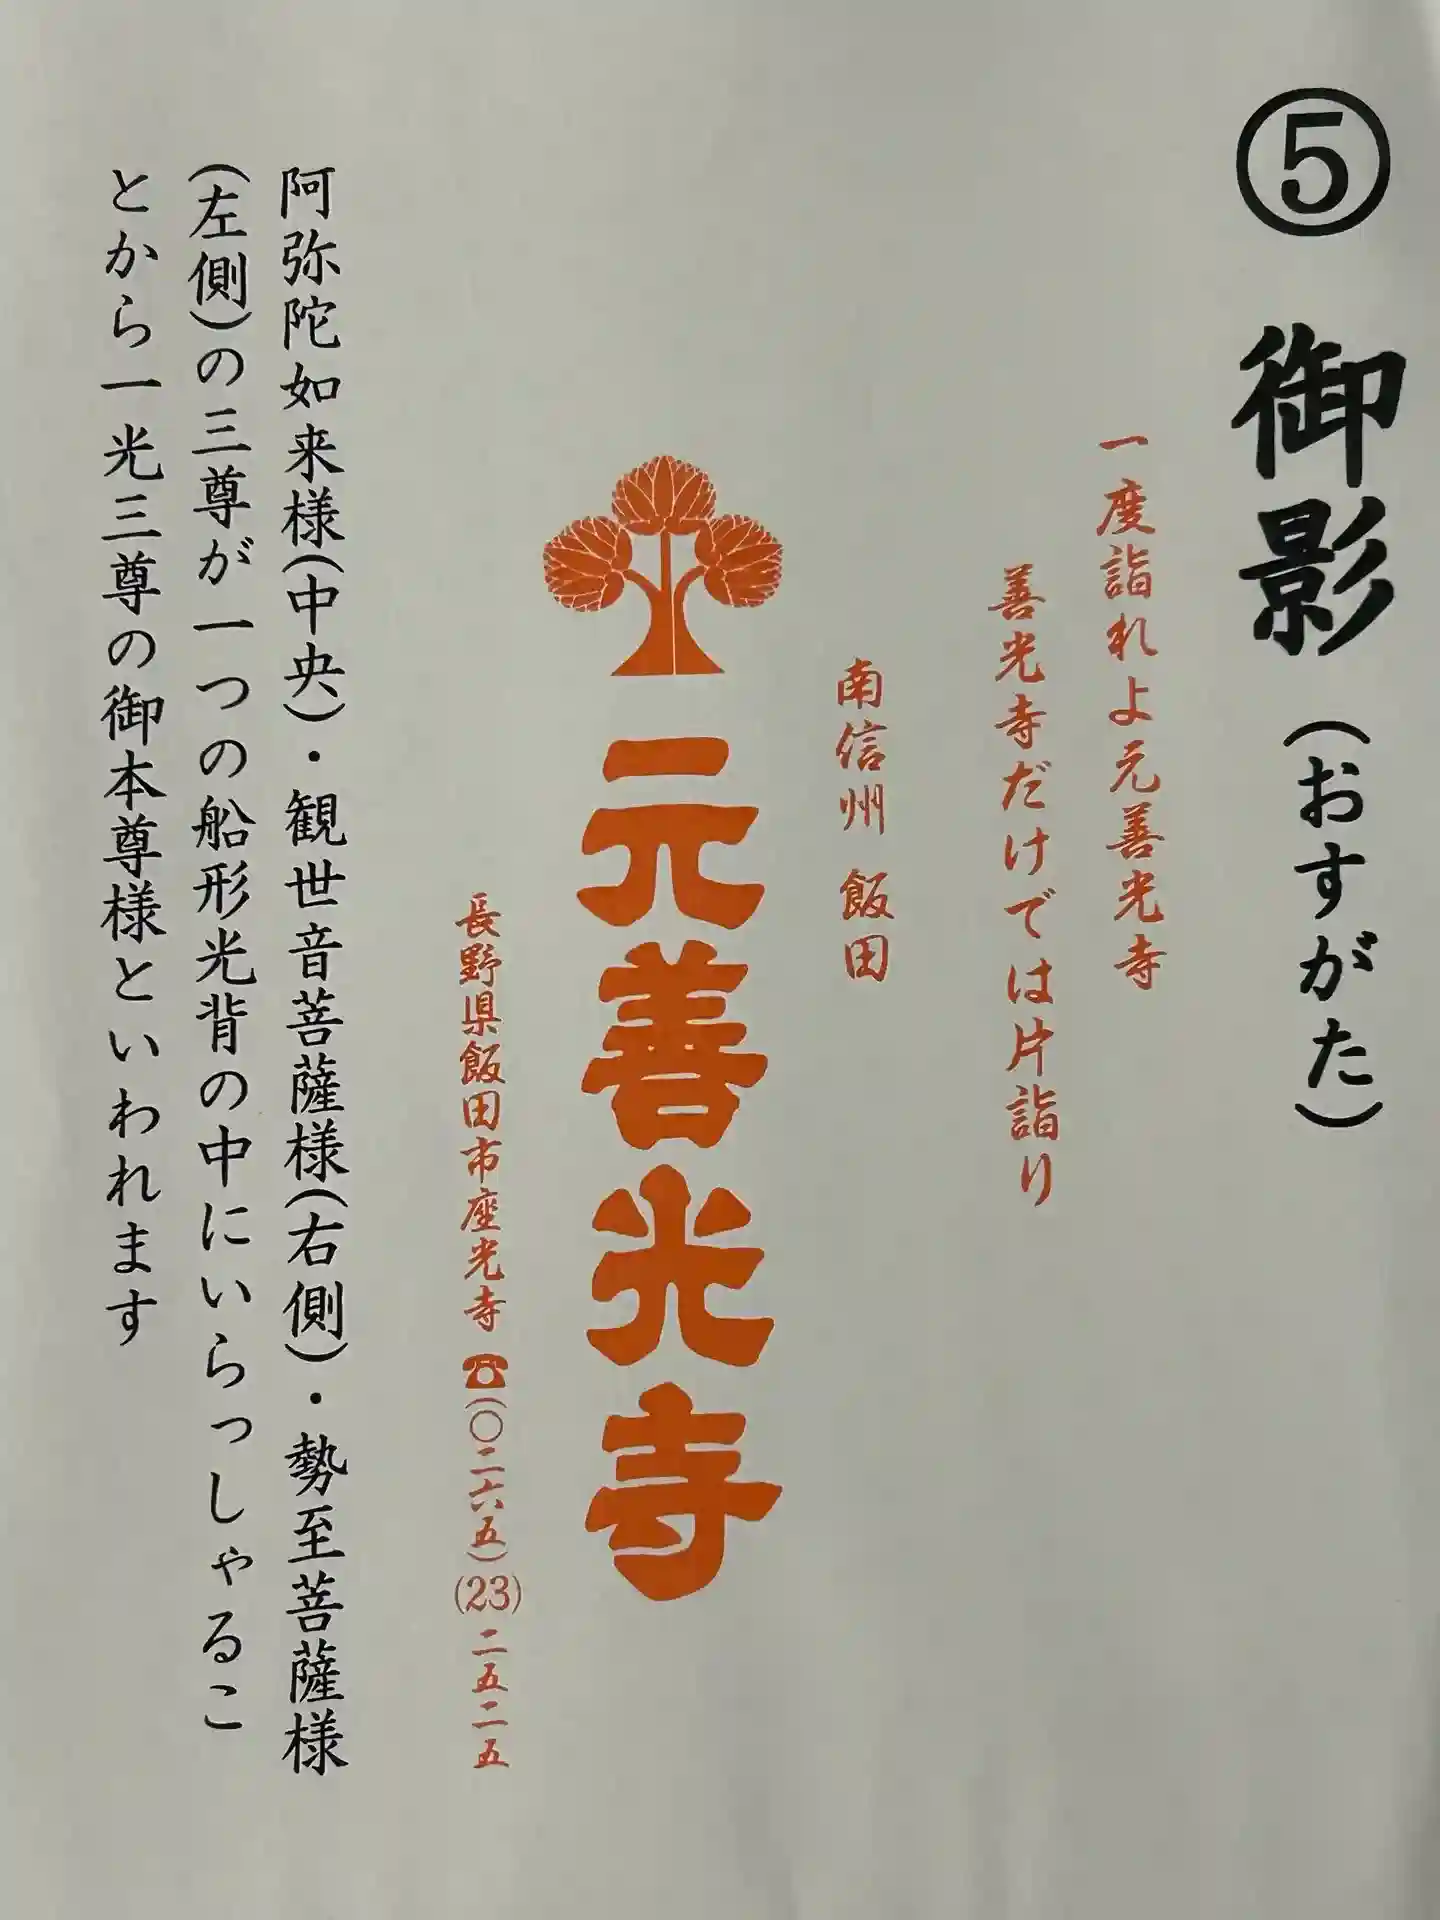 ⑤ 御影(おすがた)
一度詣れよ元善光寺
善光寺だけでは片詣り
南信州 飯田
元善光寺
長野県飯田市座光寺 ☎(〇二六五)(23)二五二五
阿弥陀如来様(中央)・観世音菩薩様(右側)・勢至菩薩様
(左側)の三尊が一つの船形光背の中にいらっしゃるこ
とから一光三尊の御本尊様といわれます